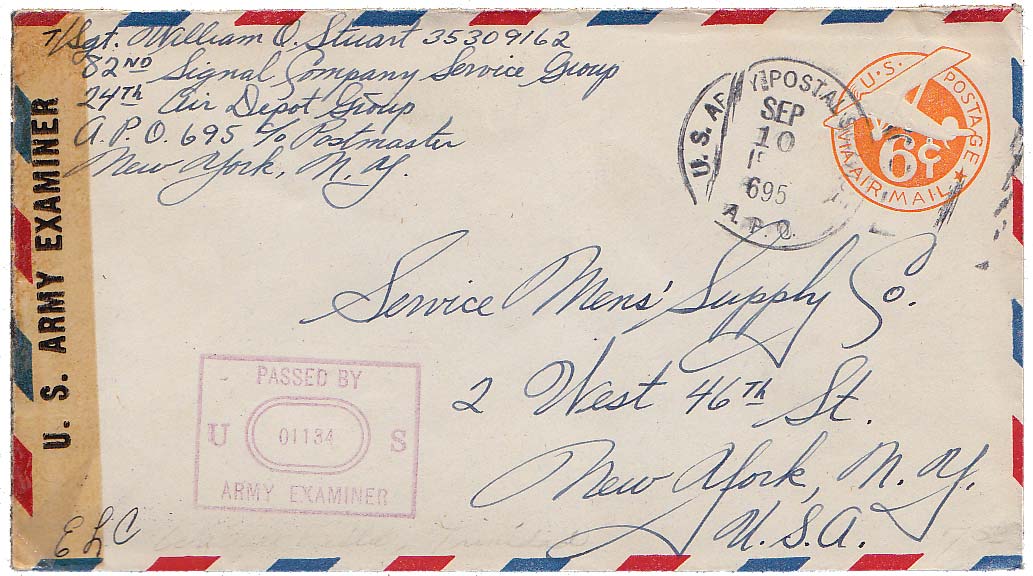 T/Sgt. William O. Stuart 35309162
82ND Signal Company Service Group
24TH Air Depot Group
A.P.O. 695 c/o Postmaster
New York, N.Y.
U.S. POSTAGE
6¢
VIA AIR MAIL
U.S. AR Y POSTAL S
SEP
10
695
A.P.O.
U. S. ARMY EXAMINER
Service Mens' Supply Co.
2 West 46TH St.
New York, N.Y.
U.S.A.
PASSED BY
U 01134 S
ARMY EXAMINER
ELC
Trinidad